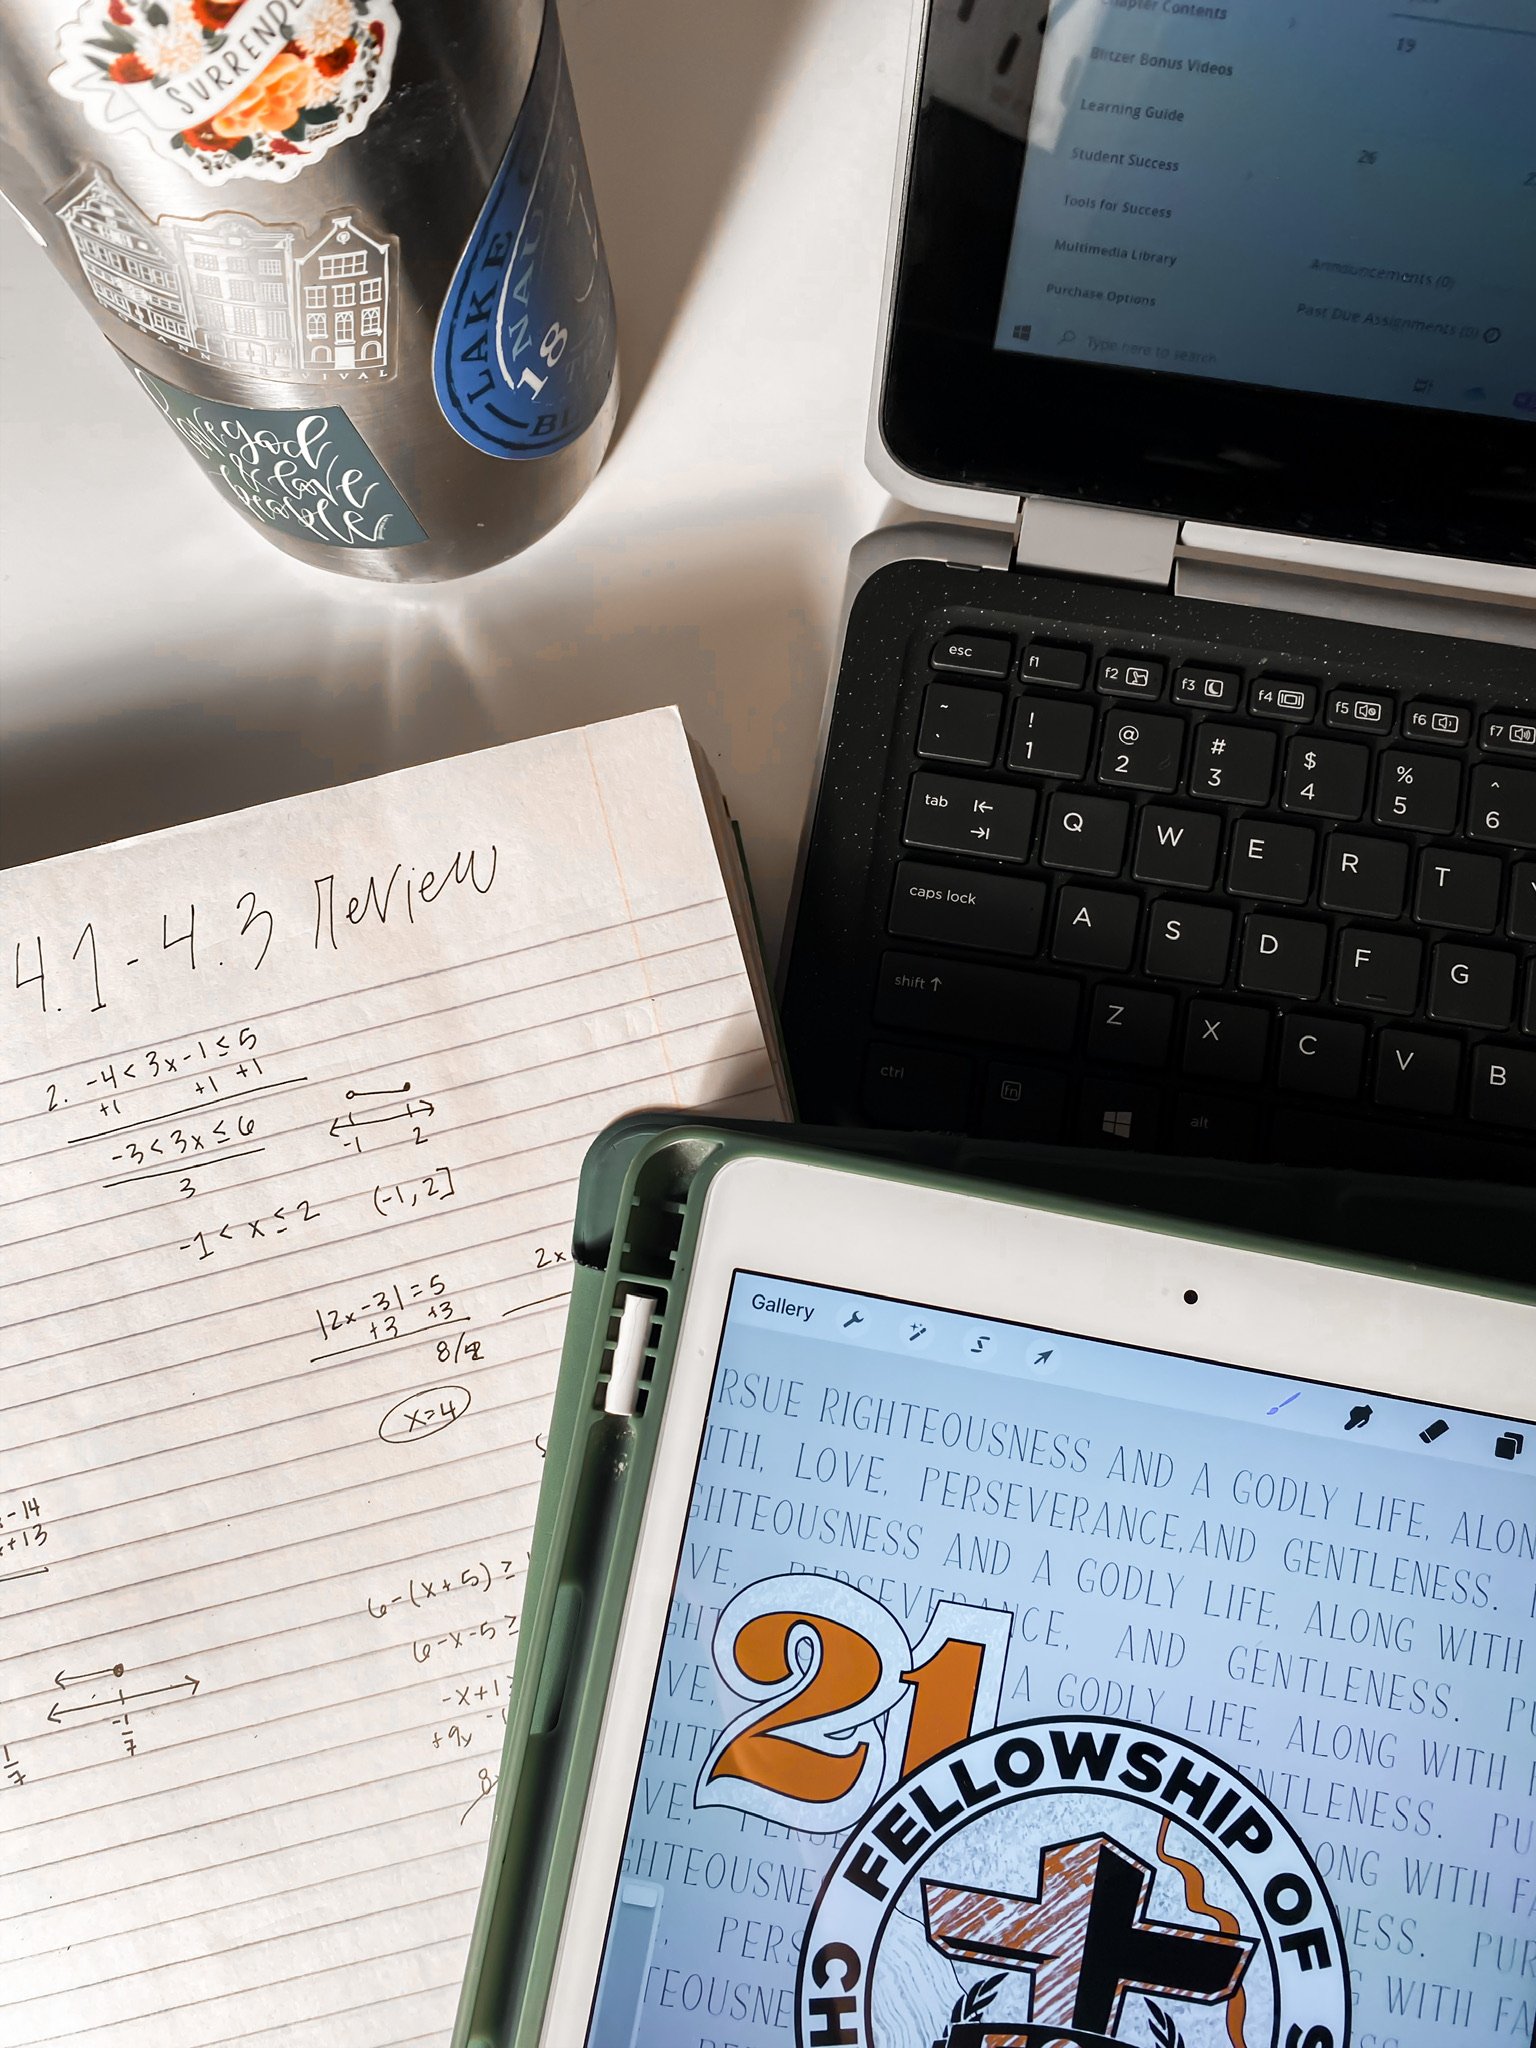 SURRENDE
IVAL
love god
& love
people
LAKE
18
Chapter Contents
Blitzer Bonus Videos
Learning Guide
Student Success
Tools for Success
Multimedia Library
Purchase Options
19
26
Announcements (0)
Past Due Assignments (0)
Type here to search
esc f1 f2 f3 f4 f5 f6 f7
~ ` ! 1 @ 2 # 3 $ 4 % 5 ^ 6
tab Q W E R T
caps lock A S D F G
shift Z X C V B
ctrl fn alt
4.1 - 4.3 Review
2. -4 < 3x - 1 ≤ 5
+1 +1 +1
-3 < 3x ≤ 6
3
-1 2
-1 < x ≤ 2 (-1, 2]
|2x - 3| = 5
+3 +3
8/2
x=4
2x
- 14
+13
6 - (x + 5) ≥
6 - x - 5 ≥
-x + 1 ≥
+9x
8
-1/7
1/7
Gallery
RSUE RIGHTEOUSNESS AND A GODLY LIFE, ALON
ITH, LOVE, PERSEVERANCE, AND GENTLENESS.
GHTEOUSNESS AND A GODLY LIFE, ALONG WITH
VE, PERSEVERANCE, AND GENTLENESS. P
GHT A GODLY LIFE, ALONG WITH
VE, NTLENESS. PU
GHT ONG WITH F
VE, PERSE NESS. PUR
GHTEOUSNE G WITH FA
PERS
TEOUSNE
21
FELLOWSHIP OF
CH